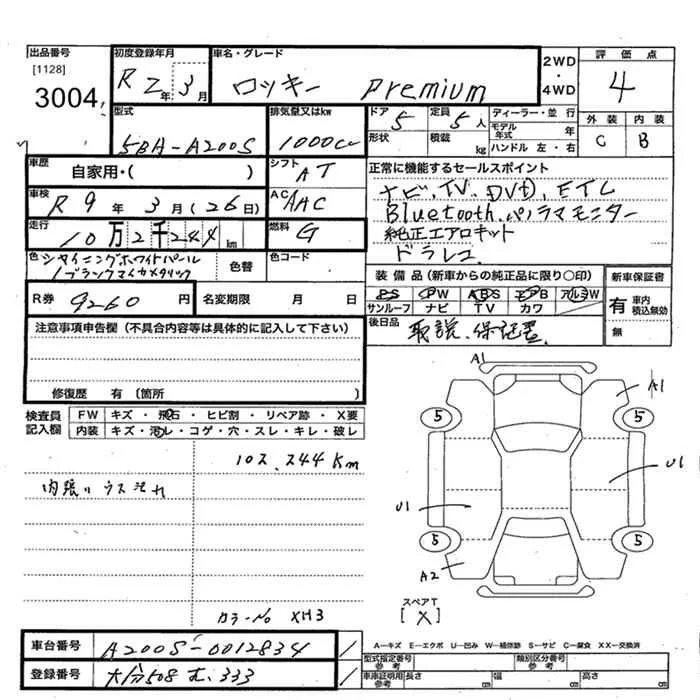 出品番号
[1128]
3004
初度登録年月
R 2年 3月
車名・グレード
ロッキー Premium
2WD
・
4WD
評価点
4
外装 内装
C B
型式
5BA-A200S
排気量又はkw
1000cc
ドア
5
定員
5人
形状
積載
kg
ディーラー・並行
モデル年式 年
ハンドル 左・右
車歴
自家用・( )
シフト
AT
車検
R 9年 3月(26日)
AC
AAC
走行
10万2千244km
燃料
G
正常に機能するセールスポイント
ナビ、TV、DVD、ETC
Bluetooth、パノラマモニター
純正エアロキット
ドラレコ
色
シャイニングホワイトパール
/ブラックマイカメタリック
色替
色コード
R券 9260円
名変期限 月 日
装備品(新車からの純正品に限り○印)
PS PW ABS エアB アルミW
サンルーフ ナビ TV カワ
後日品
取説、保証書
新車保証書
有 車内積込無効
無
注意事項申告欄(不具合内容等は具体的に記入して下さい)
修復歴 有〔箇所 〕
検査員記入欄
FW キズ・飛石・ヒビ割・リペア跡・X要
内装 キズ・汚レ・コゲ・穴・スレ・キレ・破レ
102,244Km
内張りウス汚れ
カラーNo XH3
A1
A1
5
5
U1
U1
5
5
A2
スペアT
[X]
車台番号
A200S-0012834
登録番号
大分508 む 333
A―キズ E―エクボ U―凹み W―補修跡 S―サビ C―腐食 XX―交換済
型式指定番号 参考
類別区分番号 参考
車庫証明用 参考
長さ cm
幅 cm
高さ cm